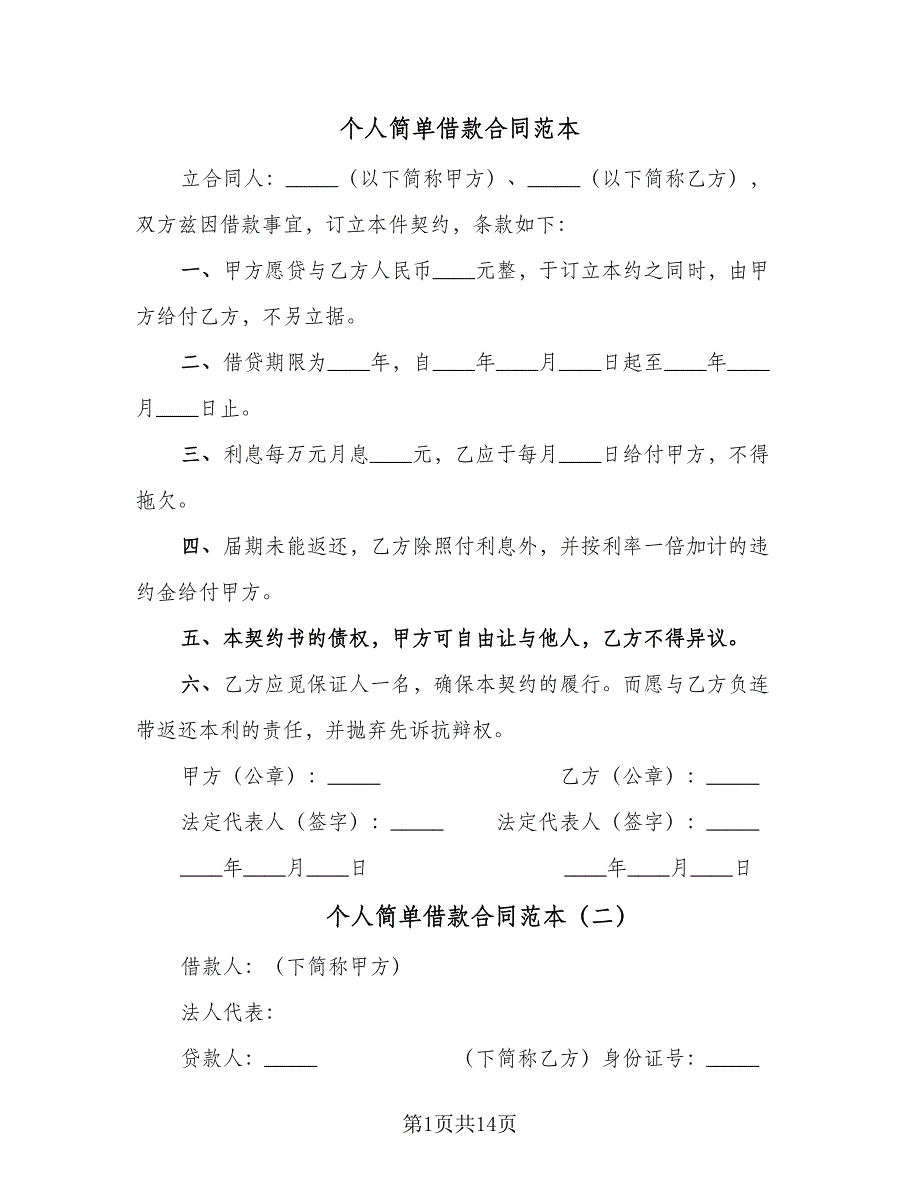 个人简单借款合同范本
立合同人：_____（以下简称甲方）、_____（以下简称乙方），
双方兹因借款事宜，订立本件契约，条款如下：
一、甲方愿贷与乙方人民币____元整，于订立本约之同时，由甲
方给付乙方，不另立据。
二、借贷期限为____年，自____年____月____日起至____年____
月____日止。
三、利息每万元月息____元，乙应于每月____日给付甲方，不得
拖欠。
四、届期未能返还，乙方除照付利息外，并按利率一倍加计的违
约金给付甲方。
五、本契约书的债权，甲方可自由让与他人，乙方不得异议。
六、乙方应觅保证人一名，确保本契约的履行。而愿与乙方负连
带返还本利的责任，并抛弃先诉抗辩权。
甲方（公章）：_____ 乙方（公章）：_____
法定代表人（签字）：_____ 法定代表人（签字）：_____
____年____月____日 ____年____月____日
个人简单借款合同范本（二）
借款人：（下简称甲方）
法人代表：
贷款人：_____ （下简称乙方）身份证号：_____
第1页共14页